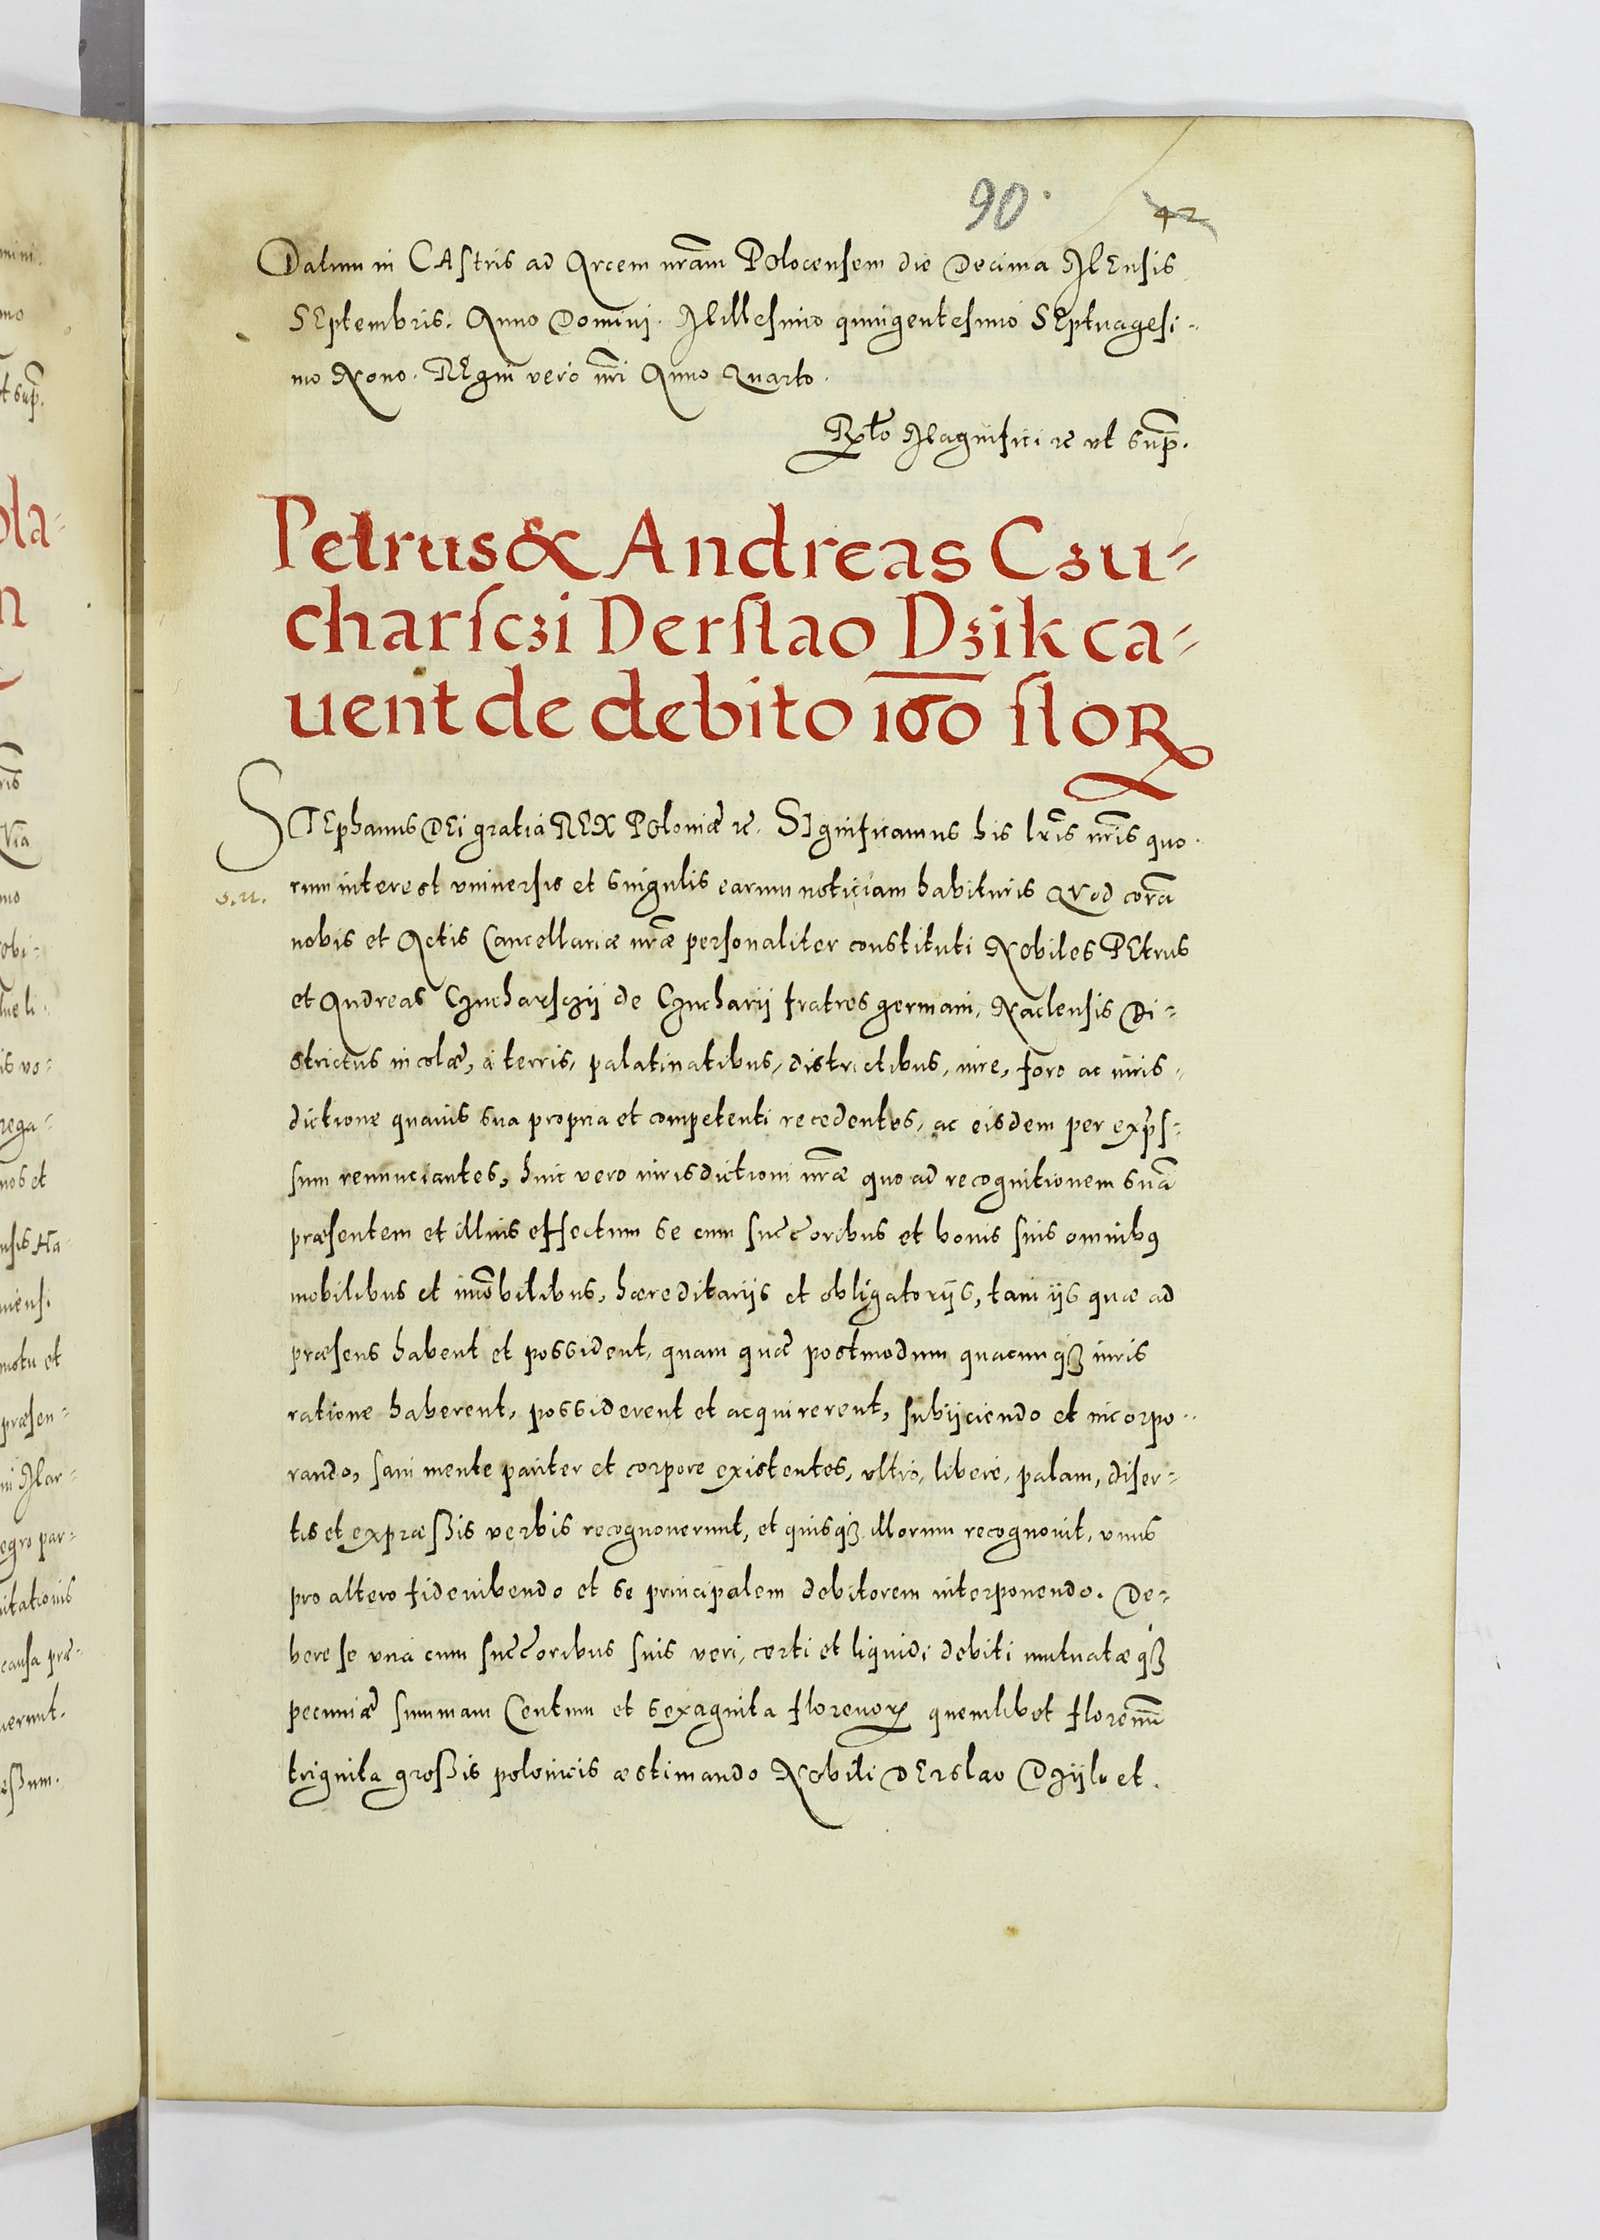 90.
42
Datum in CAstris ad Arcem nrãm POlocensem die Decima MEnsis
SEptembris. Anno Dominj. Millesimo quingentesimo SEptuagesi-
mo Nono. REgni vero nrĩ Anno Quarto.
Rltõ Magnifici rc vt sup̃.
Petrus & Andreas Czu-
charsczi Derslao Dzik ca-
uent de debito 160 floR
STEphanus DEi gratia REX POloniæ rc. SIgnificamus his lrĩs nrĩs quo-
rum interest vniuersis et singulis earum noticiam habituris QVod corã
s.n.
nobis et Actis Cancellariæ nrãe personaliter constituti Nobiles PEtrus
et Andreas Czucharsczij de Czucharij fratres germani, Naclensis Di-
strictus incolæ, à terris, palatinatibus, districtibus, iure, foro ac iuris-
dictione quauis sua propria et competenti recedentes, ac eisdem per exp̃s-
sum renunciantes, huic vero iurisdictioni nrãe quo ad recognitionem suã
præsentem et illius effectum se cum succ̃oribus et bonis suis omnibꝯ
mobilibus et imõbilibus, hæreditarijs et obligatorijs, tam ijs quæ ad
præsens habent et possident, quam quæ postmodum quacunqꝫ iuris
ratione haberent, possiderent et acquirerent, subijciendo et incorpo-
rando, sani mente pariter et corpore existentes, vltro, libere, palam, diser-
tis et expræßis verbis recognouerunt, et quisqꝫ illorum recognouit, vnus
pro altero fideiubendo et se principalem debitorem interponendo. De-
bere se vnà cum succ̃oribus suis veri, certi et liquidi debiti mutuatæqꝫ
pecuniæ summam Centum et sexaginta florenoꝝ quemlibet florenũm
triginta großis polonicis æstimando Nobili DErslao Dzijk et.